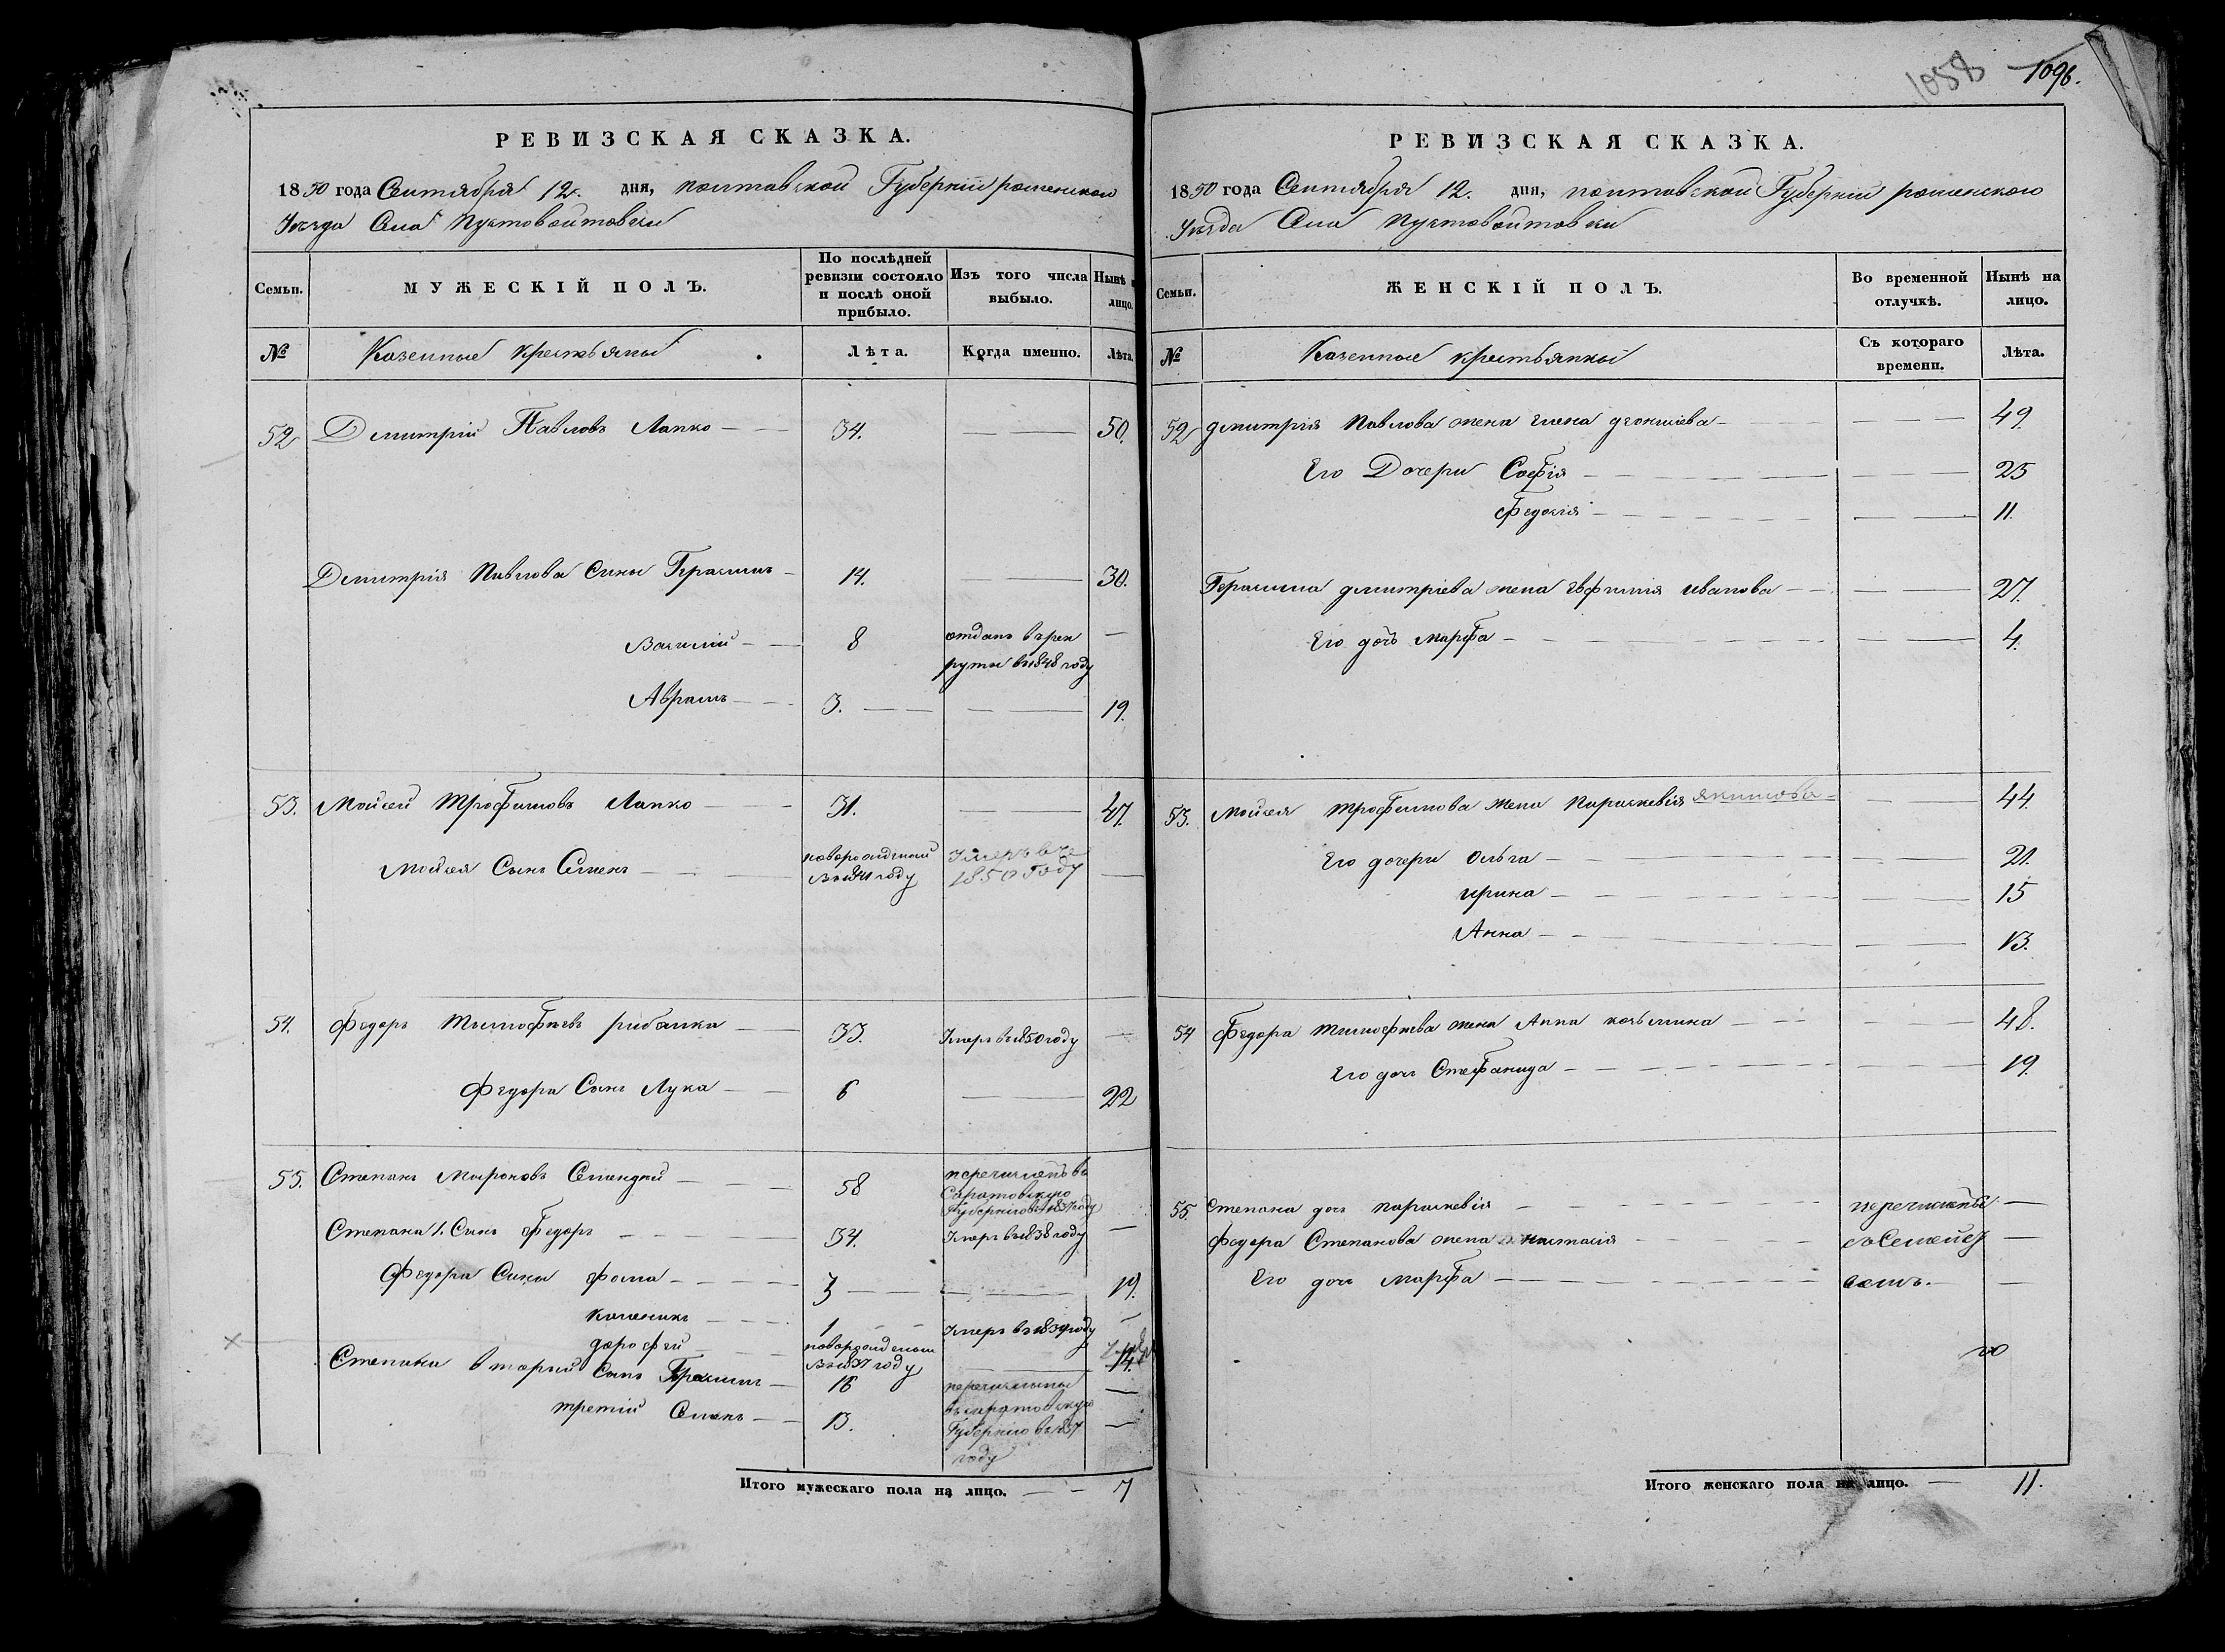 РЕВИЗСКАЯ СКАЗКА.
1850 года Сентября 12. дня, полтавской Губернии роменского
Уезда Села Пустовойтовки
Семьи.
МУЖЕСКІЙ ПОЛЪ.
По послѣдней ревизіи состояло и послѣ оной прибыло.
Изъ того числа выбыло.
Нынѣ лицо.
№
Казенные крестьяны
Лѣта.
Когда именно.
Лѣта.
52 Дмитрій Павловъ Лапко 34. 50.
Дмитрія Павлова Сины Герасимъ 14. 30.
Василій 8 отданъ въ рек
руты въ 1848 году
Аврамъ 3. 19.
53. Мойсей Трофимовъ Лапко 31. 47.
Мойсея Сынъ Семенъ новорожденый въ 1841 году
1850 году
54. Федоръ Тимофѣевъ рибалка 33. Умеръ въ 1850 году
Федора Сынъ Лука 6 22
55. Степанъ Мироновъ 58 перечисленъ въ
Саратовскую
Губернію въ 1837 году
Степана 1. Сынъ Федоръ 34. Умеръ въ 1838 году
Федора Сины Фома 3 19.
1 Умеръ въ 1839 году
дорофей новорожденый въ 1837 году 14.
Степана вторый Сынъ Герасимъ 16 перечислены
третій Семенъ 13. въ саратовскую
Губернію въ 1837
году
Итого мужескаго пола на лицо. 7
1058 1096.
РЕВИЗСКАЯ СКАЗКА.
1850 года Сентября 12. дня, полтавской Губерніи роменского
Уезда Села Пустовойтовки
Семьи.
ЖЕНСКІЙ ПОЛЪ.
Во временной отлучкѣ.
Нынѣ на лицо.
№
Казенные крестьянкы
Съ котораго времени.
Лѣта.
52 дмитрія Павлова жена 49
Его Дочери Софія 25
Федосія 11.
Герасима дмитріева жена Евфимія иванова 27.
Его дочъ марфа 4.
53. Мойсея Трофимова жена Параскевія якимова 44.
Его дочери Ольга 21.
ирина 15
Анна 13.
54 Федора Тимофѣева жена Анна 48.
Его дочъ Стефанида 19.
55. Степана дочъ параскевія перечислены
Федора Степанова жена настасія
Его дочъ марфа
Итого женскаго пола на лицо. 11.